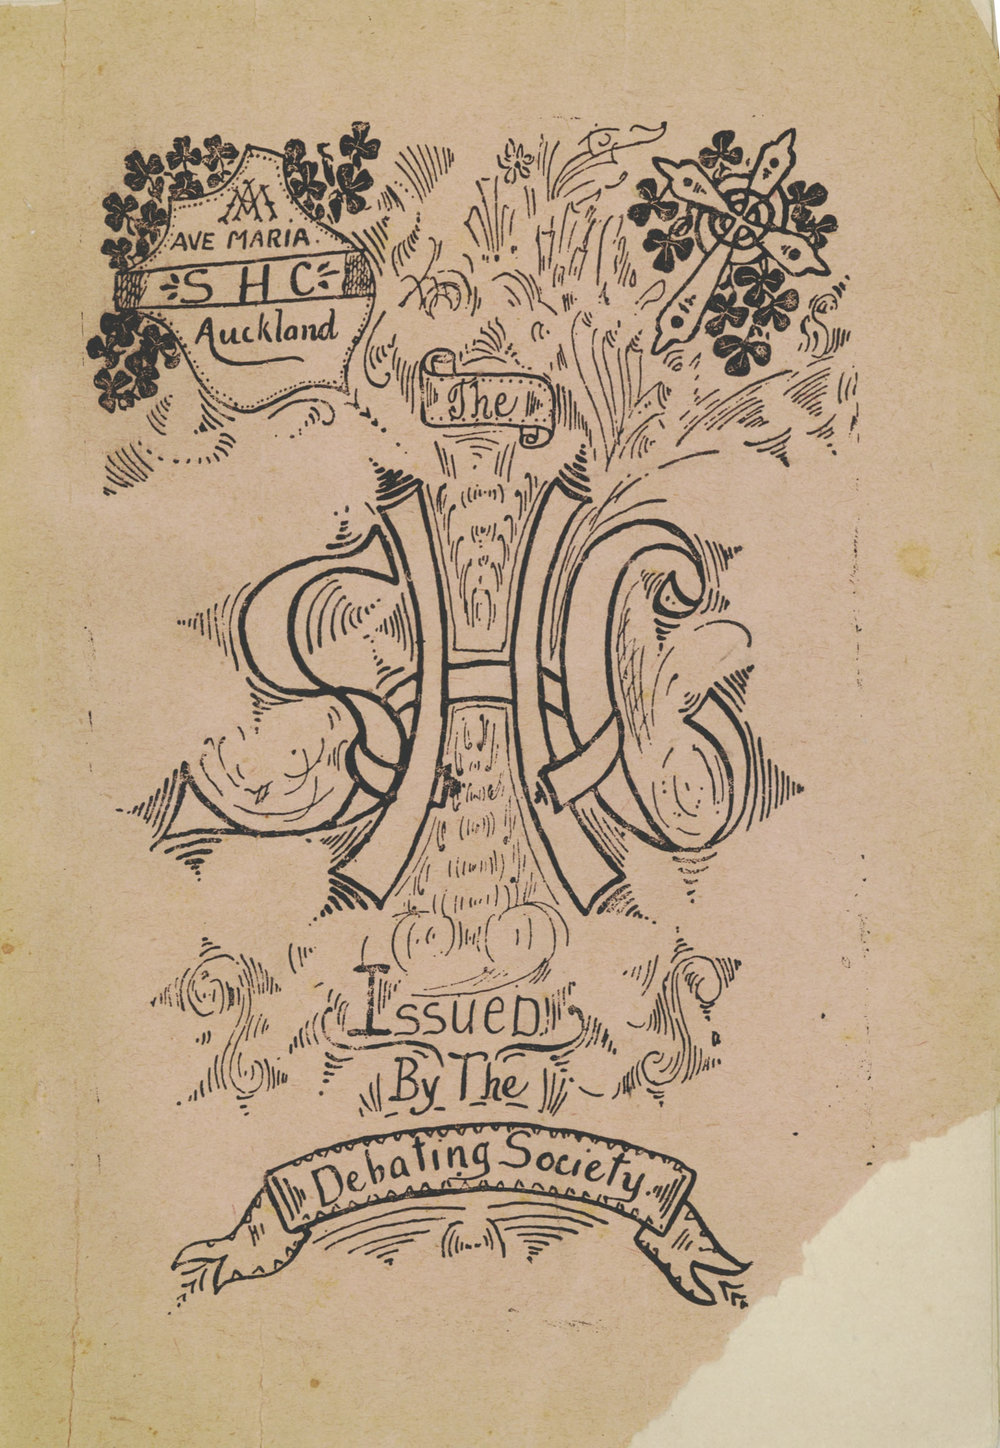 AVE MARIA
S H C
Auckland
The
SHC
Issued
By The
Debating Society.